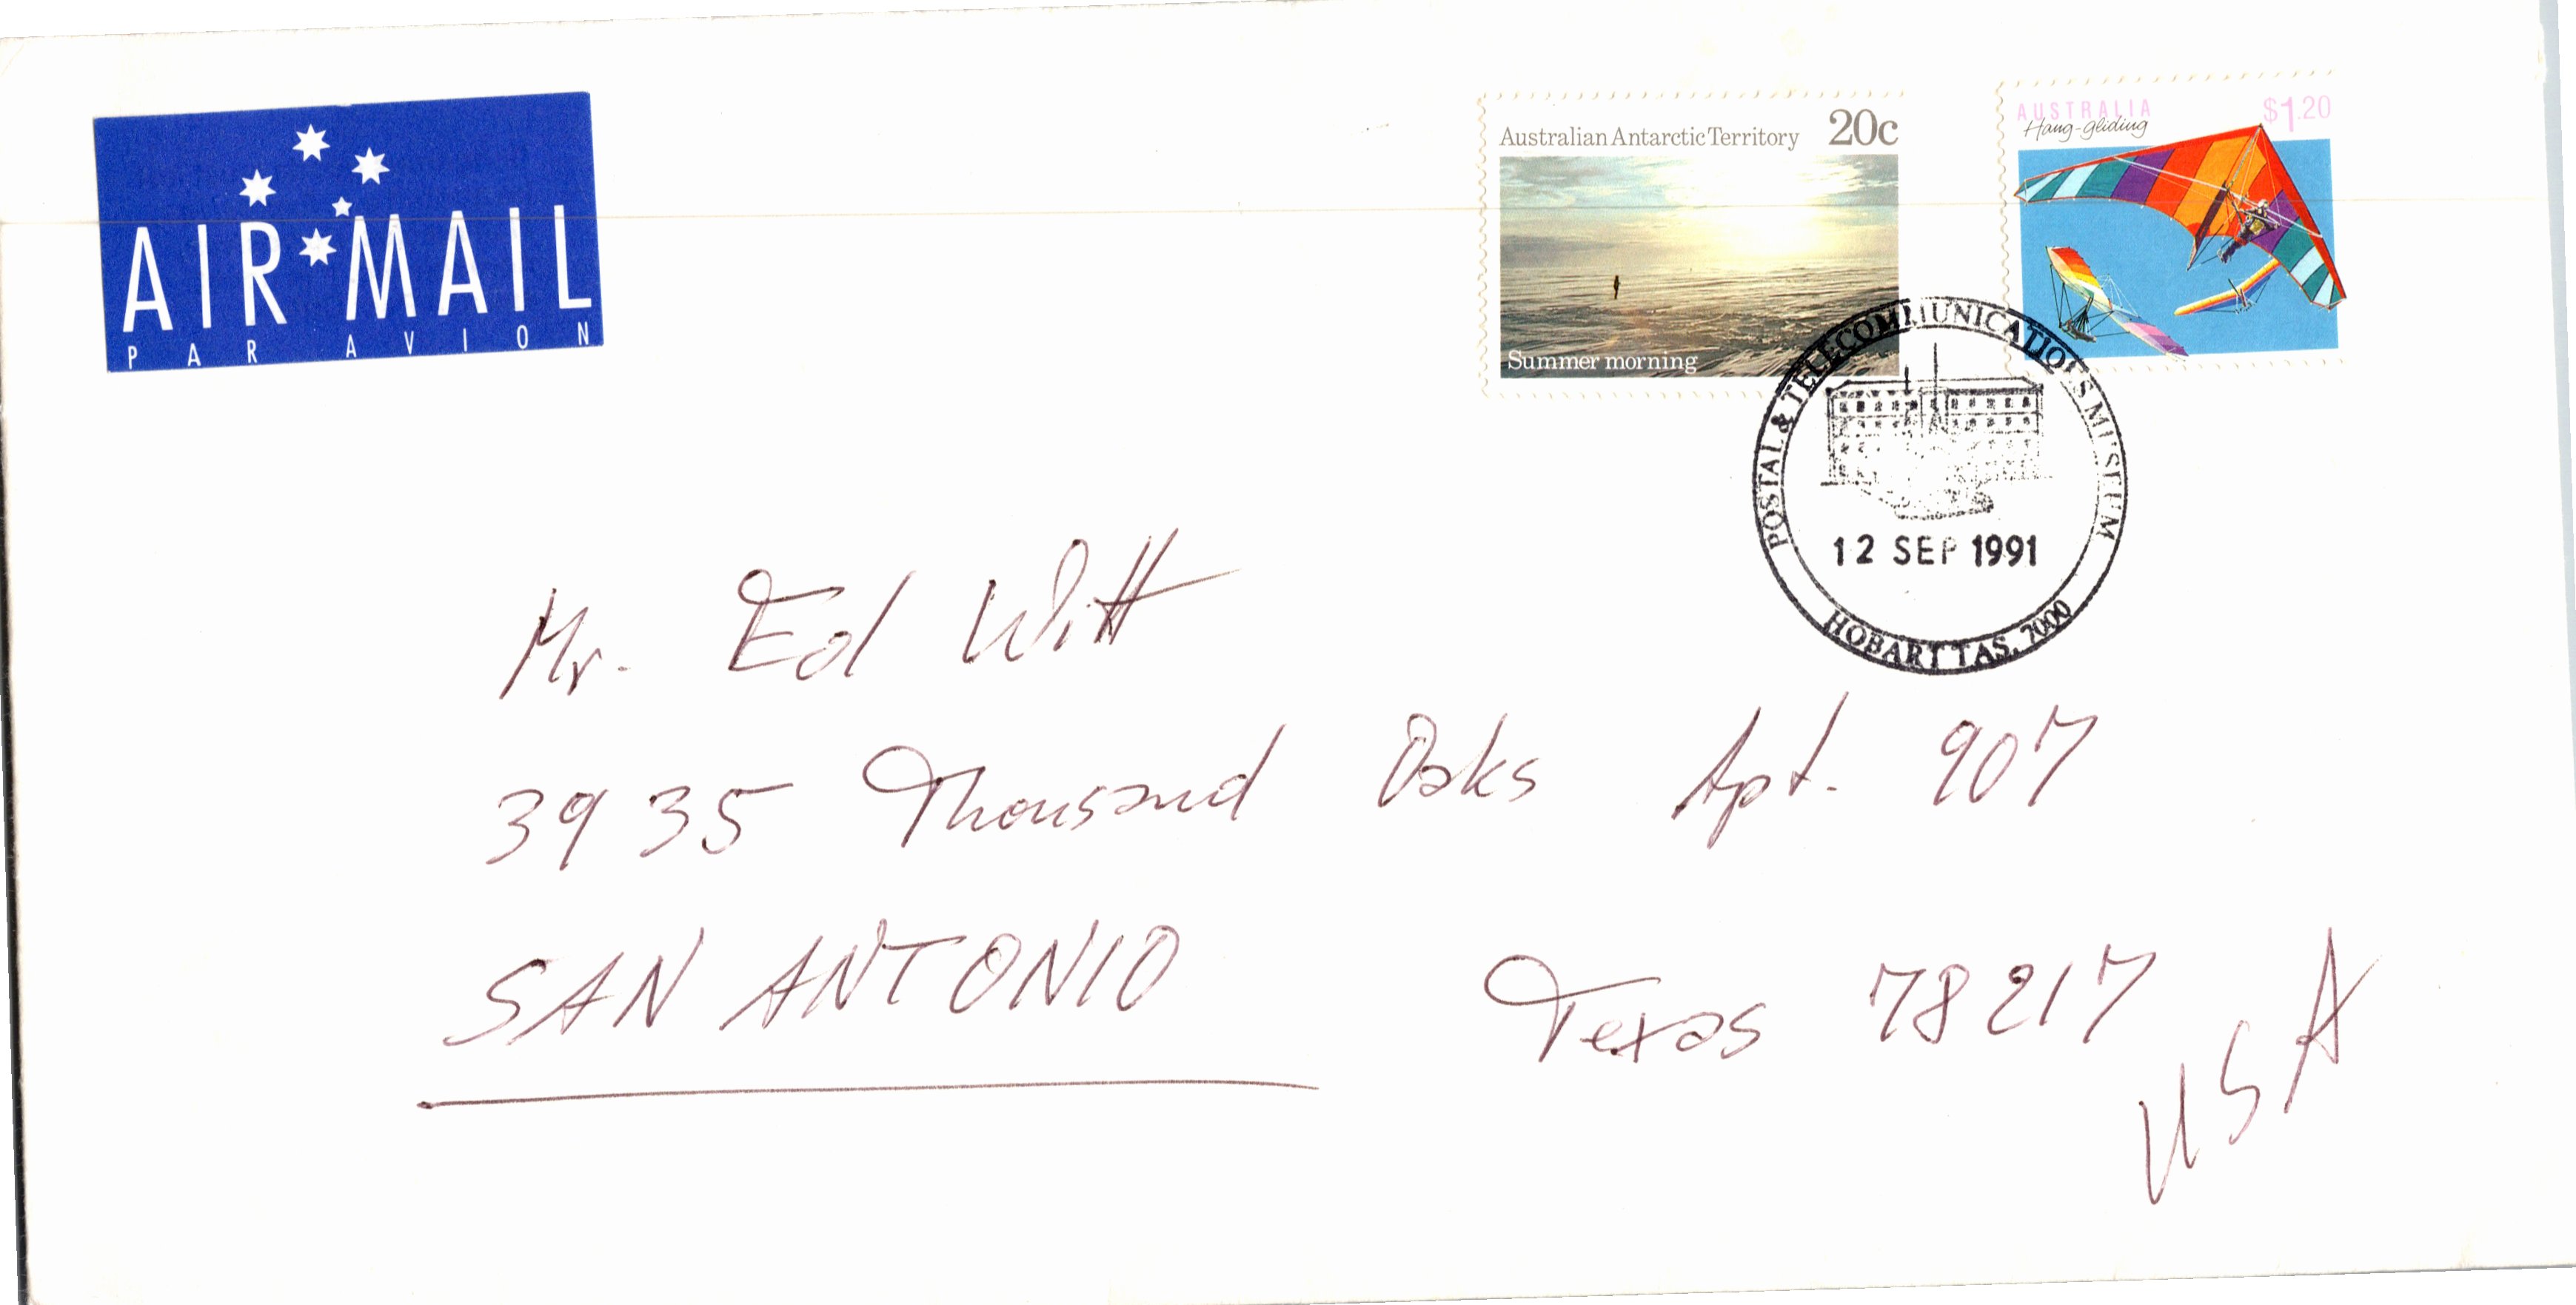 AIR MAIL
PAR AVION
Australian Antarctic Territory 20c
Summer morning
AUSTRALIA $1.20
Hang-gliding
POSTAL & TELECOMMUNICATIONS MUSEUM
12 SEP 1991
HOBART TAS. 7000
Mr. Ed Witt
3935 Thousand Oaks Apt. 907
SAN ANTONIO Texas 78217
USA